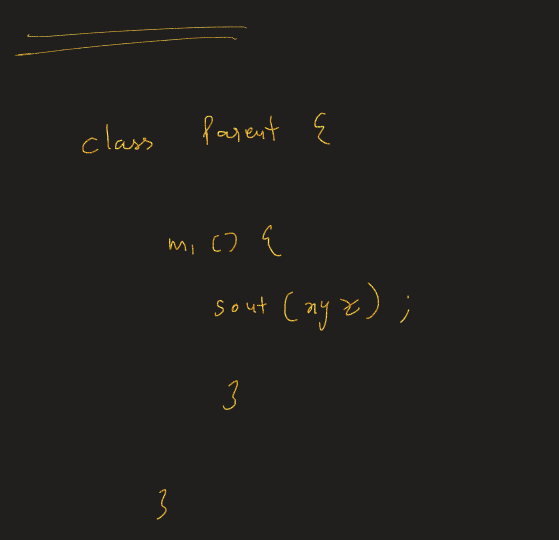 class Parent {
m1 () {
sout (xyz) ;
}
}